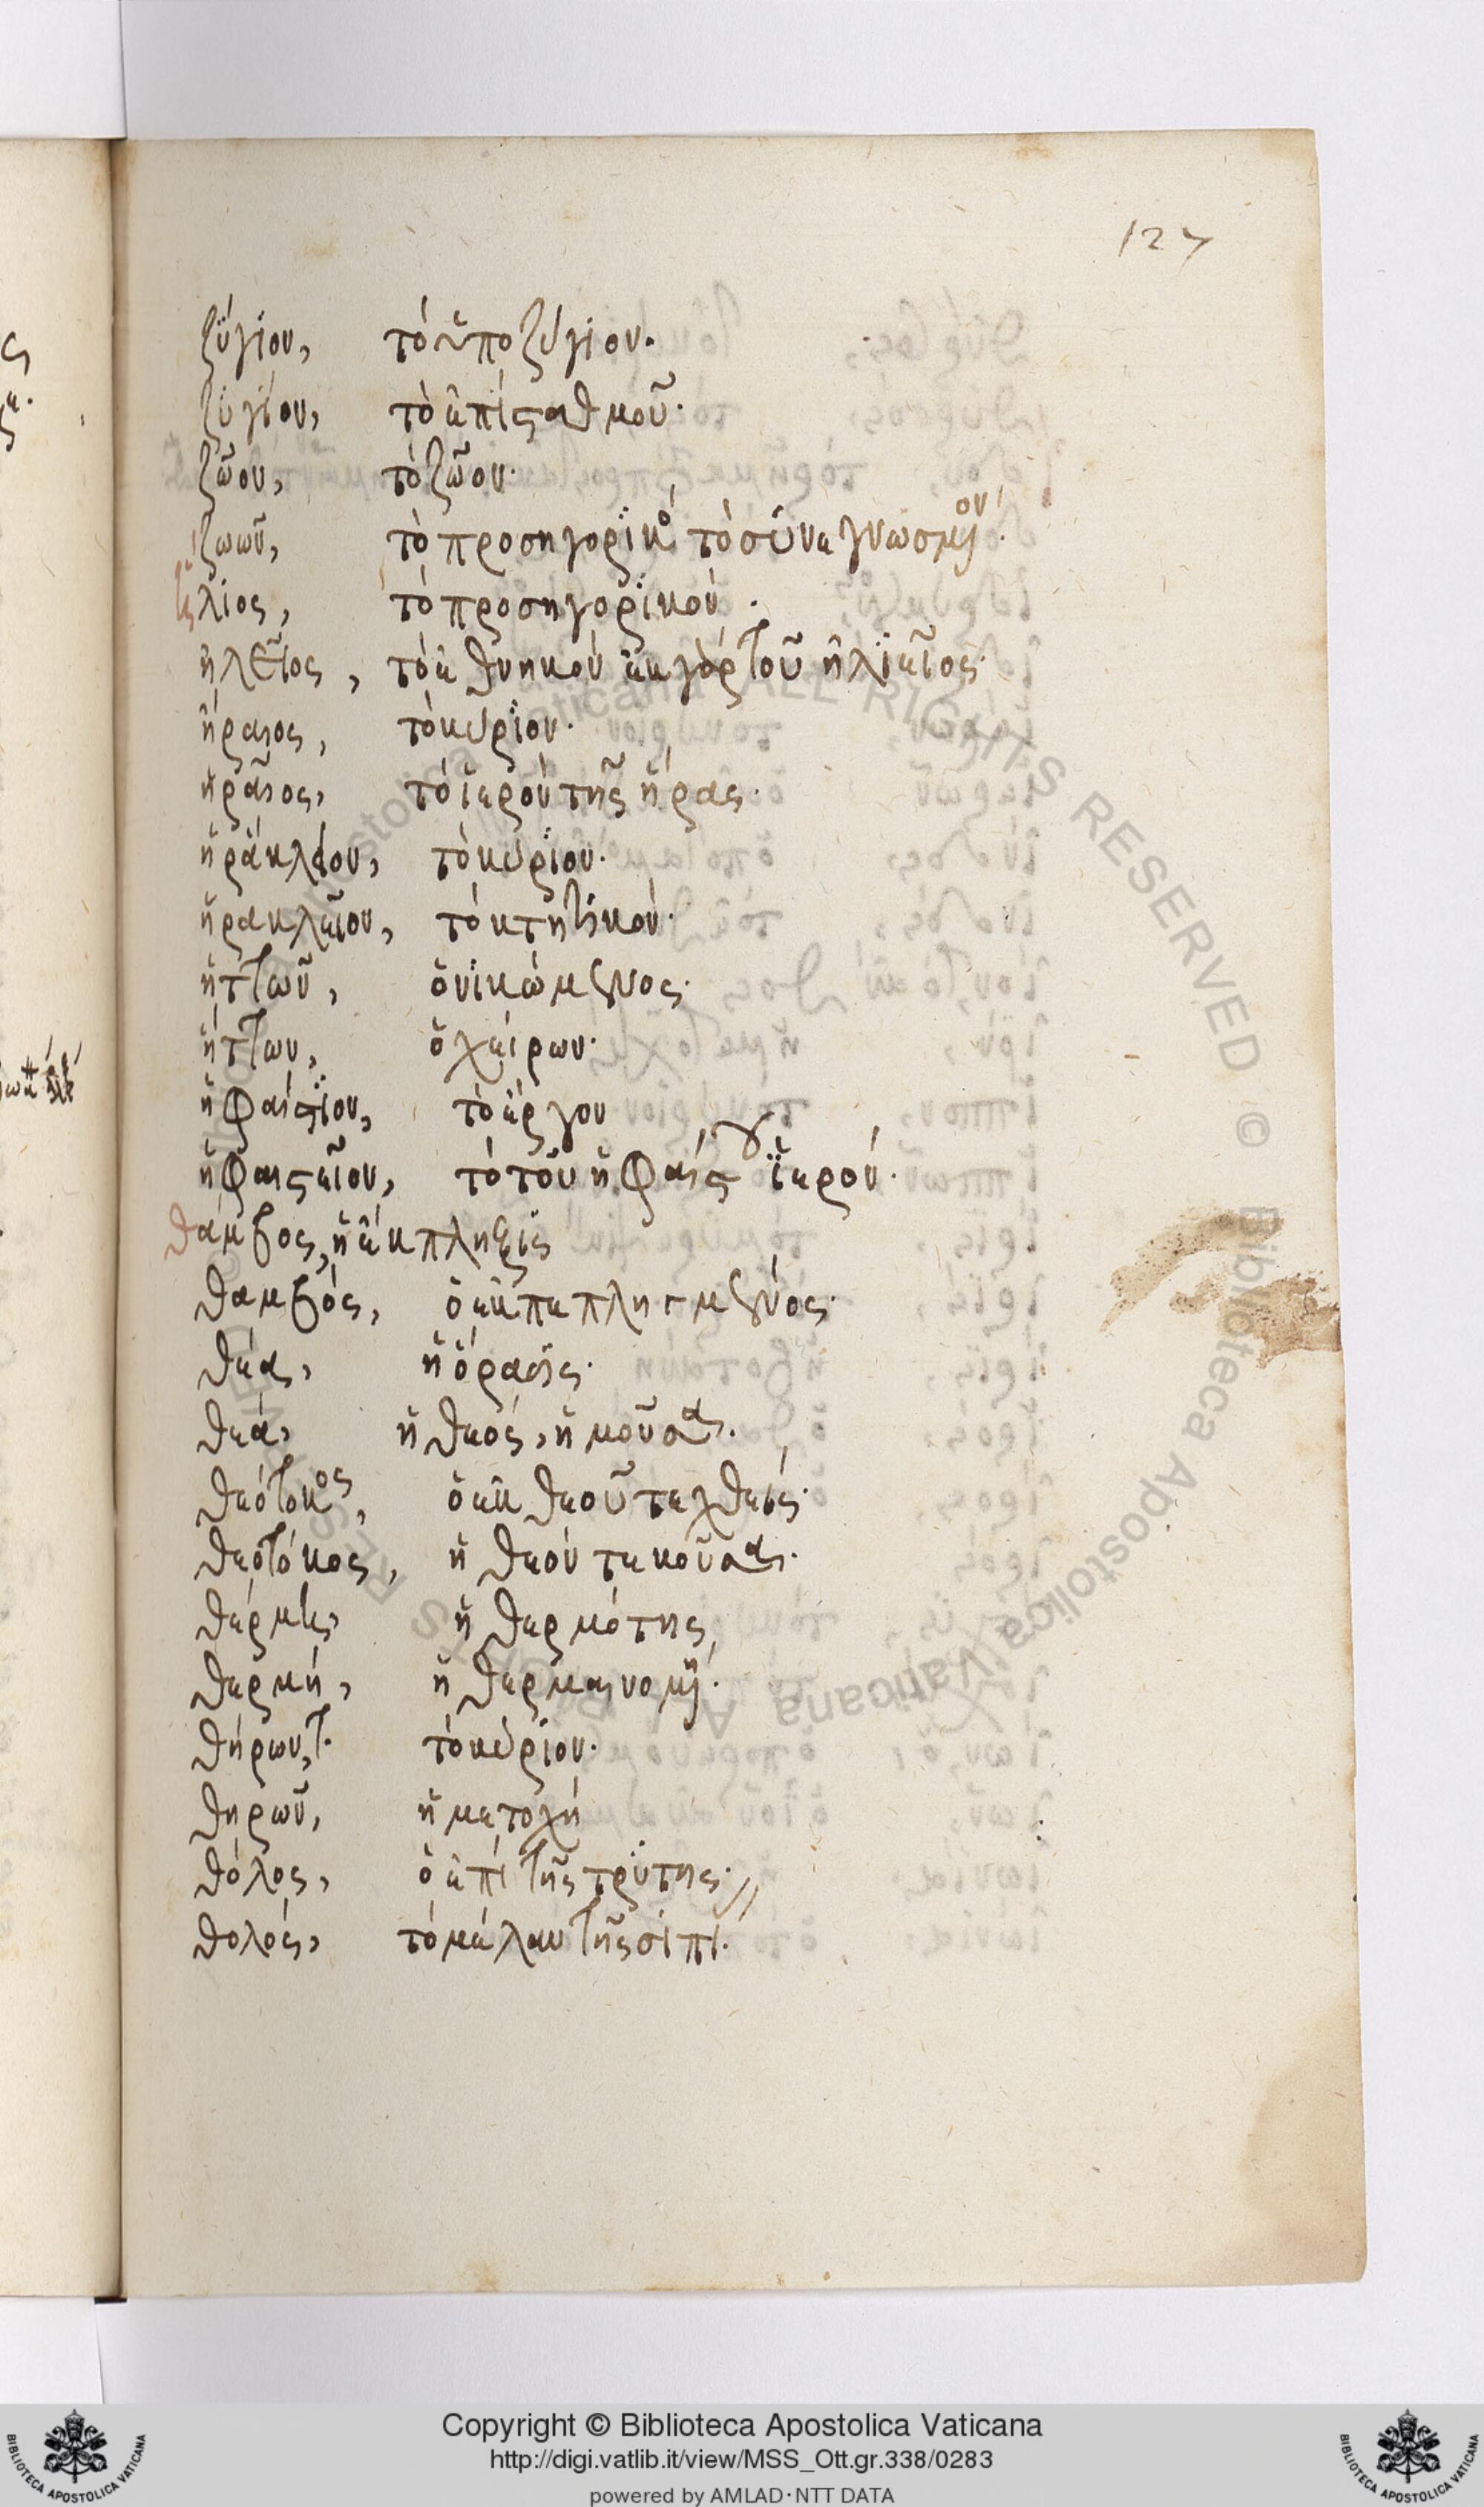 127
ζύγϊον, τὸ ὑποζύγιον·
ζυγίον, τὸ ἐπὶ σταθμοῦ·
ζῶον, τὸ ζῶον·
ζωὸν, τὸ προσηγορϊκὸ
ἥλιος, τὸ προσηγορϊκόν.
ἠλεῖος, τὸ ἐθνηκόν
ἥραιος, τὸ κύρϊον·
ἡραῖος, τὸ ἱερὸν τῆς ἥρας·
ἡράκλειον, τὸ κύρϊον·
ἡρακλεῖον, τὸ κτητικόν·
ἡττῶν, ὁ νϊκώμενος·
ἥττων, ὁ χείρων·
ἡφαίστϊον, τὸ ἔργον
ἡφαιστεῖον, τὸ τοῦ ἡφαίστ ἱερόν·
θάμβος, ἡ ἔκπληξις
θαμβός, ὁ ἐκπεπληγμένος·
θέα, ἡ ὅρασις·
θεά, ἡ θεός, ἡ μοῦσα.
θεότοκος, ὁ ἐκ θεοῦ τεχθείς·
θεοτόκος, ἡ θεόν τεκοῦσα.
θέρμης, ἡ θερμότης
θερμή, ἡ θερμαινομένη.
θήρων, τὸ κύρϊον·
θηρῶν, ἡ μετοχή
θόλος, ὁ ἐπὶ τῆς τρύτης·//
θολός, τὸ μέλαν τῆς σιπί.
Copyright © Biblioteca Apostolica Vaticana
http://digi.vatlib.it/view/MSS_Ott.gr.338/0283
powered by AMLAD·NTT DATA